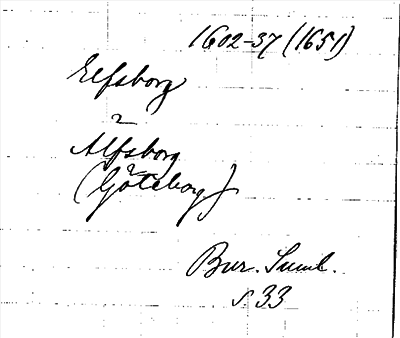 1602-37 (1651)
Elfsborg
2
Älfsborg
(Göteborg)
Bur. Suml.
s 33